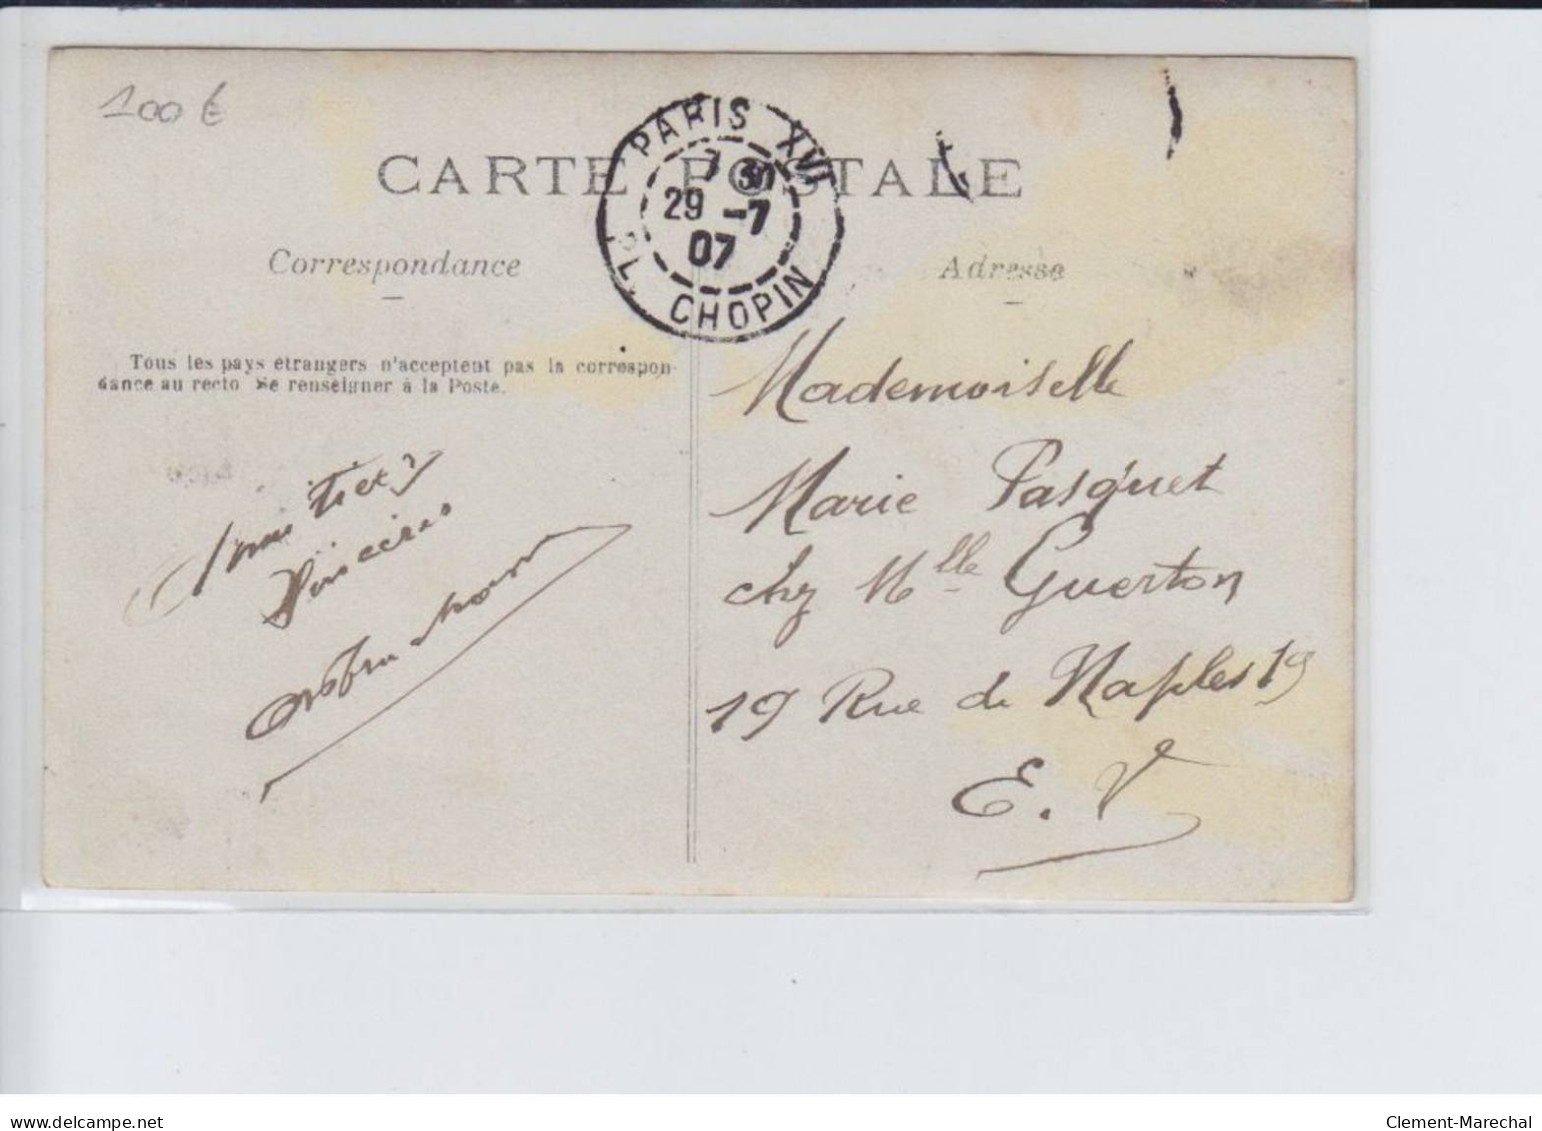 100 €
CARTE POSTALE
PARIS XVI
7 30
29 -7
07
PL. CHOPIN
Correspondance
Adresse
Tous les pays étrangers n'acceptent pas la correspon-
dance au recto Se renseigner à la Poste.
Amitiés
Sincères
Mademoiselle
Marie Pasquet
chz Mlle Guerton
19 Rue de Naples 19
E. V
delcampe.net
Clement-Marechal